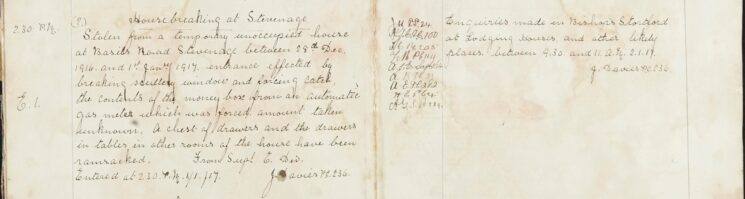 2.30 P.M.
(2.) Housebreaking at Stevenage
Stolen from a temporary unoccupied house
at Basils Road Stevenage between 28th Dec.
1916 and 1st Jany 1917, entrance effected by
breaking scullery window and forcing catch
E. 1. the contents of the money box from an automatic
gas meter which was forced, amount taken
unknown. A chest of drawers and the drawers
in tables in other rooms of the house have been
ransacked. From Supt E. Div.
Entered at 2.30. P.M. 1/1/17. J. Davies PC 236.
Enquiries made in Bishops Stortford
at Lodging houses, and other likely
places, between 9.30. and 11 A.M. 2.1.17.
J. Davies PC 236.